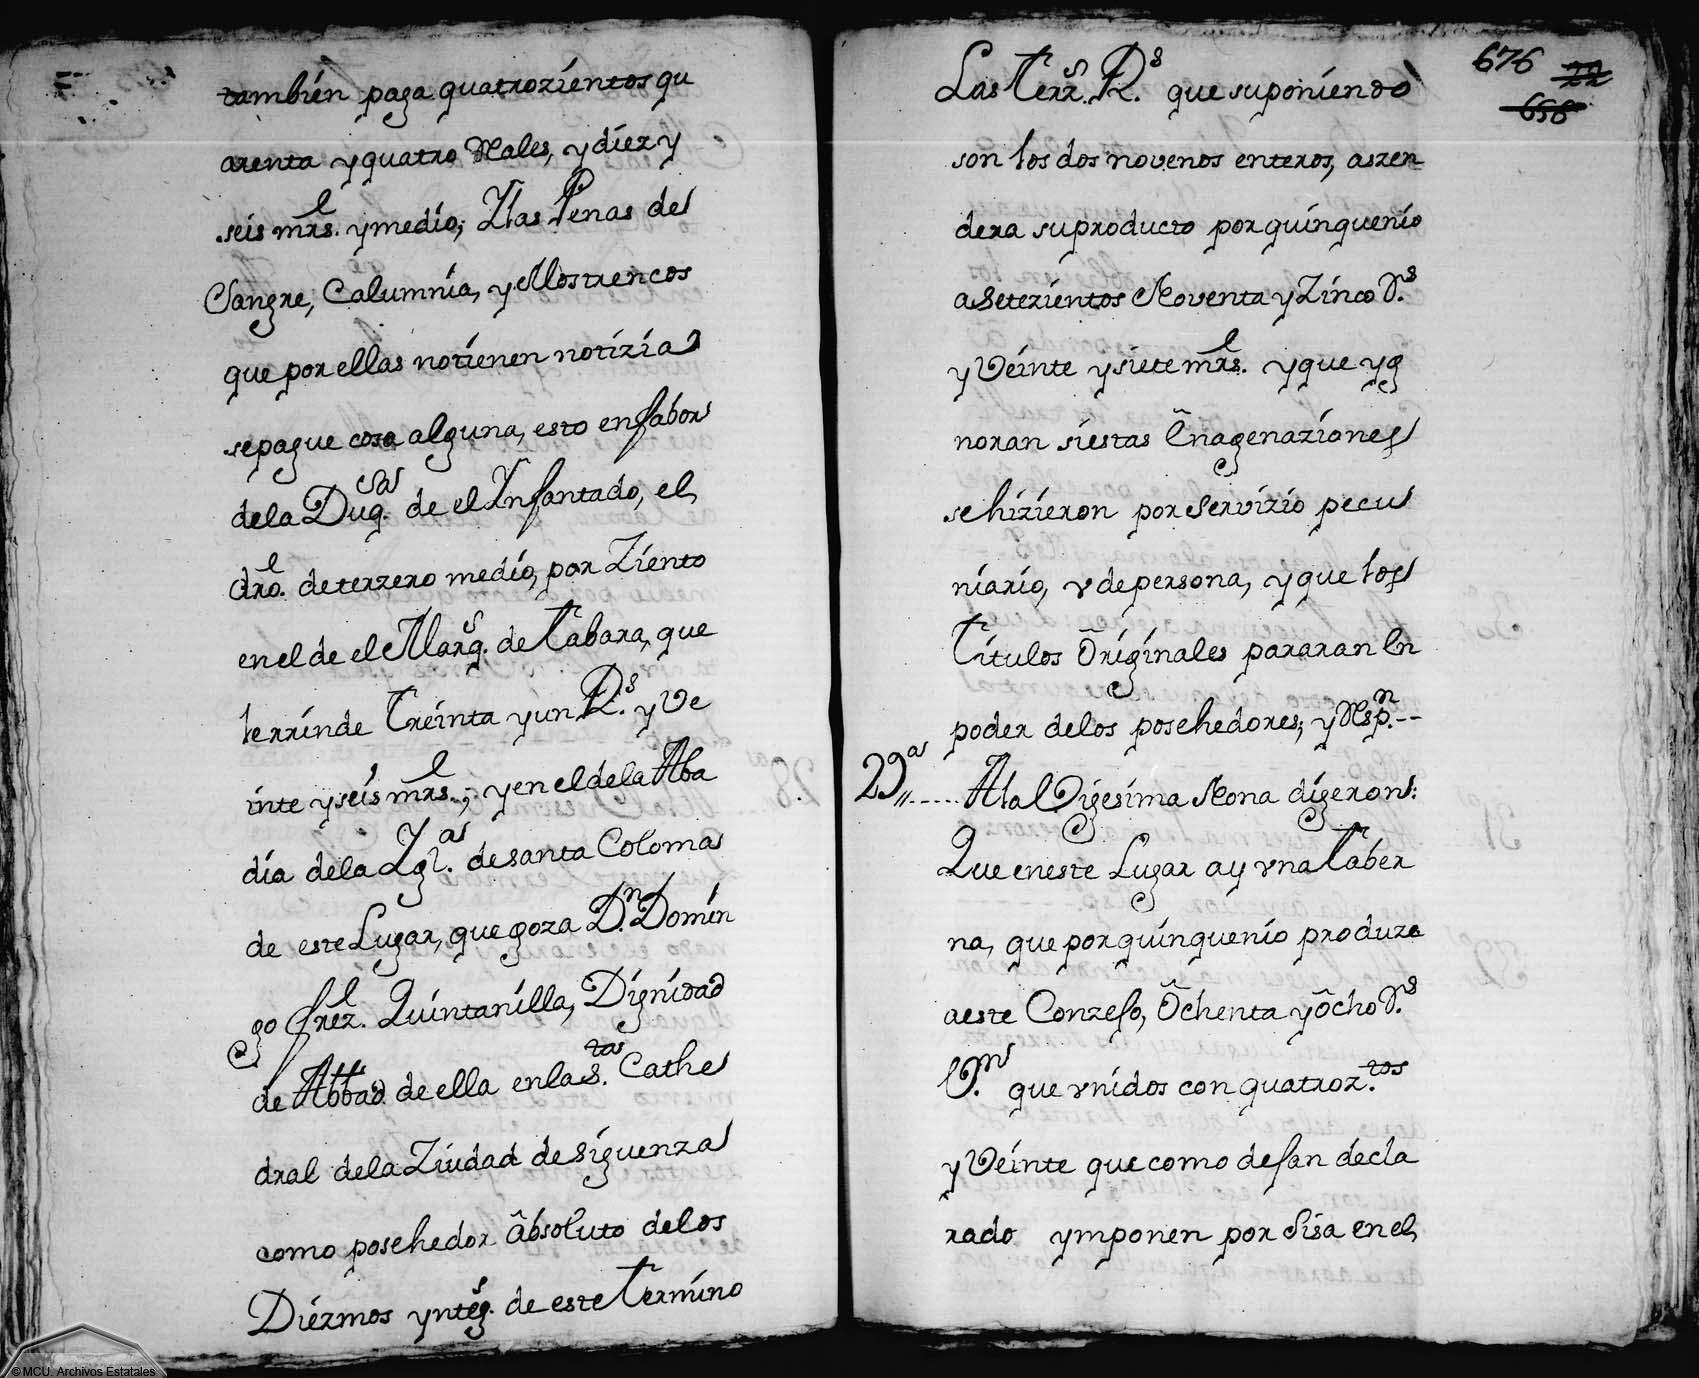 también paga quatrozientos qu
arenta y quatro Rales, y diez y
seis mrs. y medio; Ylas Penas de
Sangre, Calumnia, y Mostrencos
que por ellas notienen notizia
sepague cosa alguna, esto enfabor
dela Duq.sa de el Ynfantado, el
dro. deterzero medio, por Ziento
enel de el Marq.s de Tabara, que
lerrinde Treinta yun R.s y Ve
inte y seis mrs.; y en el dela Aba
día dela Ygl.a de santa Coloma
de este Lugar, que goza D.n Domin
go frez. Quintanilla, Dignidad
de Abbad de ella enla S.ta Cathe
dral dela Ziudad de Siguenza
como posehedor âbsoluto delos
Diezmos ynteg.s de este Termino
676 22
658
Las Terz.s R.s que suponiendo
son los dos novenos enteros, aszen
dera suproducto por quinquenio
a Setezientos Noventa y Zinco r.s
y Veinte y siete mrs. y que yg
noran siestas Enagenaziones
se hizieron por Servizio pecu
niario, v de persona, y que los
Titulos Originales pararan En
poder delos posehedores; y Resp.n--
29a,,..... Ala Vigesima Nona digeron:
Que eneste Lugar ay vna Taber
na, que por quinquenio produze
aeste Conzejo, Ochenta y ôcho r.s
V.n que vnidos con quatroz.tos
y Veinte que como dejan decla
rado ymponen por Sisa en el
© MCU. Archivos Estatales